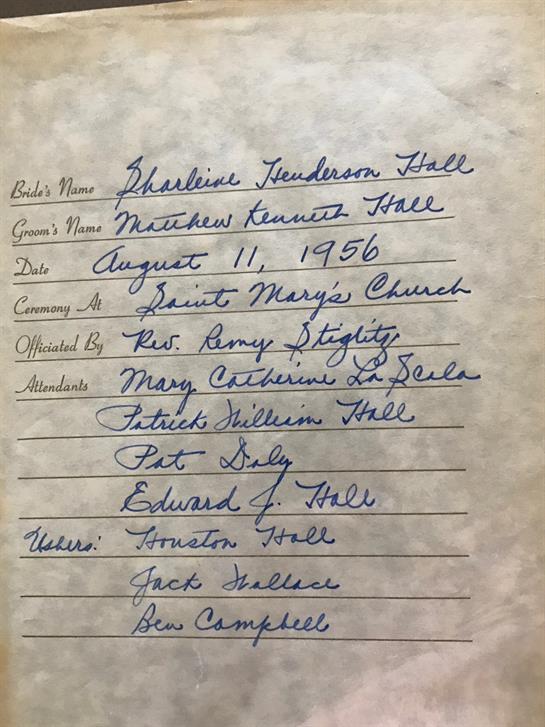 Bride's Name Sharleine Henderson Hall
Groom's Name Matthew Kenneth Hall
Date August 11, 1956
Ceremony At Saint Mary's Church
Officiated By Rev. Remy Stiglitz
Attendants Mary Catherine La Scala
Patrick William Hall
Pat Daly
Edward J. Hall
Ushers: Houston Hall
Jack Wallace
Ben Campbell